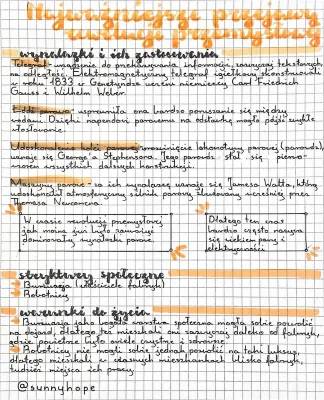 Najważniejsze pojęcia
rewolucji przemysłowej
wynalazki i ich zastosowanie
Telegraf - urządzenie do przekazywania informacji, zazwyczaj tekstowych,
na odległość. Elektromagnetyczny telegraf igiełkowy skonstruowali
w roku 1833 w Getyndze uczeni niemieccy Carl Friedrich
Gauss i Wilhelm Weber.
Łódź parowa - usprawniła ona bardzo poruszanie się między
wodami. Dzięki napędowi parowemu na odstawkę mogło pójść zwykłe
wiosłowanie.
Udoskonalenie kolei parowej
uznaje się George'a Stephensona. Jego parowóz stał się pierwo-
wzorem wszystkich dalszych konstrukcji.
Maszyny parowe - za ich wynalazcę uznaje się Jamesa Watta, który
udoskonalił atmosferyczny silnik parowy zbudowany wcześniej przez
Thomasa Newcomena.
W czasie rewolucji przemysłowej
jak można już było zauważyć
dominowały wynalazki parowe.
Dlatego ten czas
bardzo często nazywa
się wiekiem pary i
elektryczności
struktury społeczne
Burżuazja (właściciele fabryk)
Robotnicy
warunki do życia
Burżuazja jako bogata warstwa społeczna mogła sobie pozwolić
na dojazd, dlatego też mieszkali oni zazwyczaj daleko od fabryk,
gdzie powietrze było świeże czyste i zdrowe.
Robotnicy nie mogli sobie jednak pozwolić na taki luksus,
dlatego mieszkali w ciasnych mieszkankach blisko fabryk,
tudzież miejsca ich pracy.
@sunnyhope